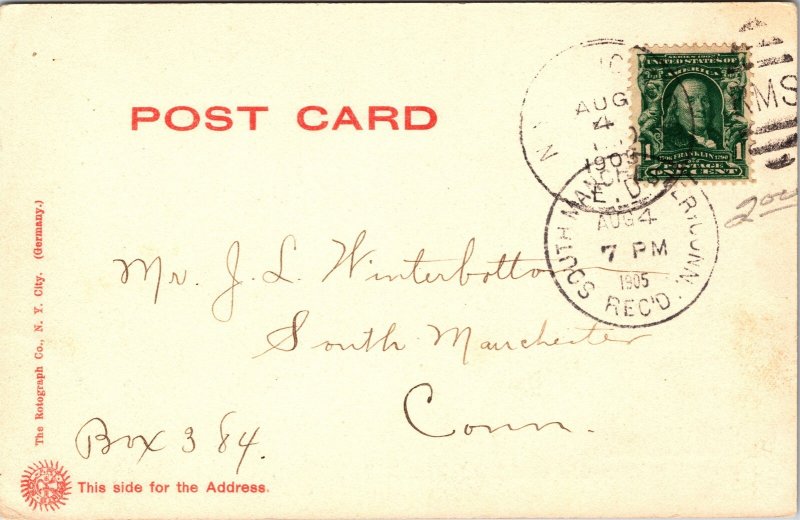 POST CARD
AUG
4
1905
RMS
SERIES 1902
UNITED STATES OF
AMERICA
1706 FRANKLIN 1790
1 1
POSTAGE
ONE CENT
SOUTH MANCHESTER, CONN.
AUG 4
7 PM
1905
REC'D.
Mr. J. L. Winterbottom
South Manchester
Conn.
Box 384.
The Rotograph Co., N. Y. City. (Germany.)
This side for the Address.